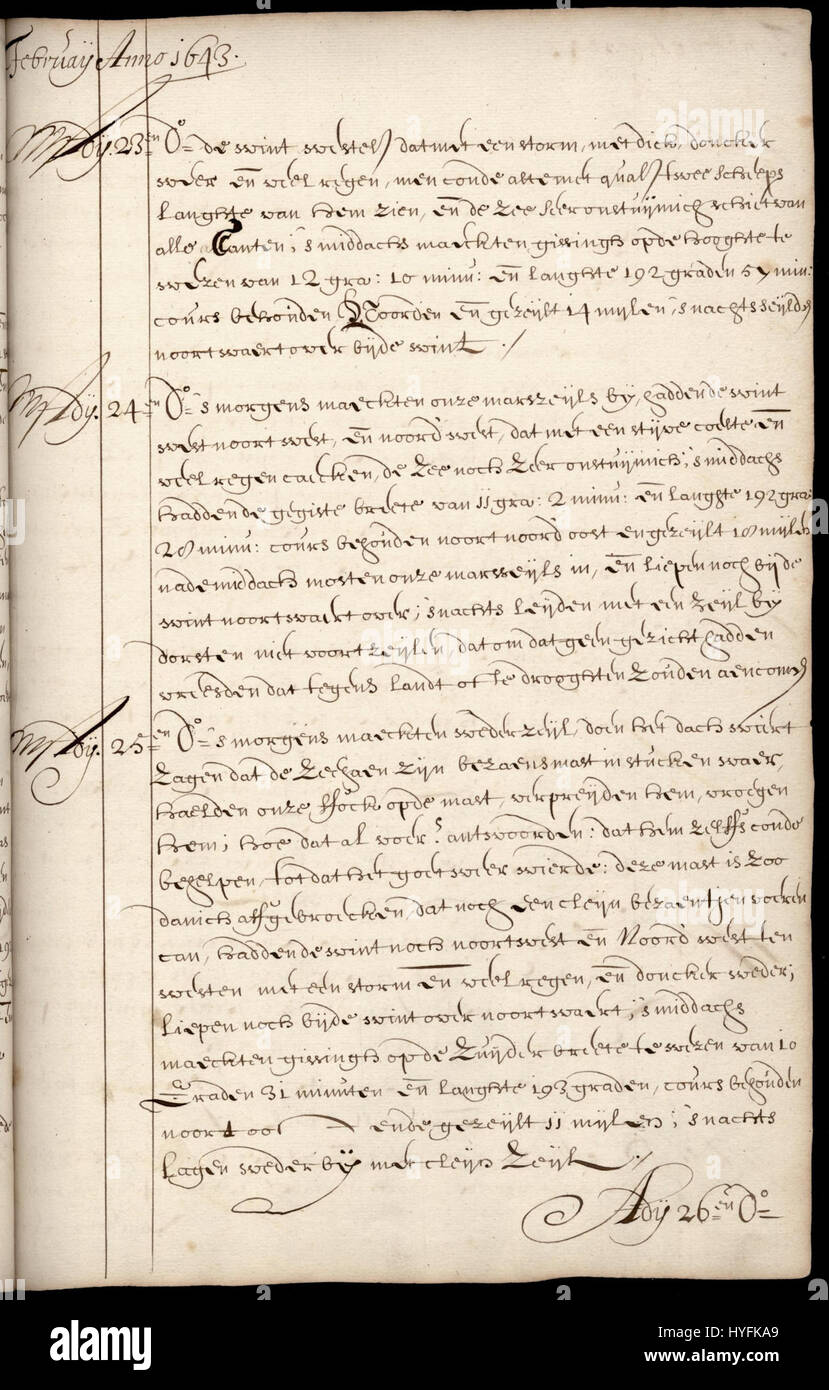 Februaij Anno 1643.
Ady. 23en Do de wint westel: dat met een storm, met dick, doncker
weer en veel regen, men conde altemet qual: twee scheeps
langhte van hem zien, en de zee seer onstuijmich schiet van
alle Canten; 's middachs maeckten gissingh op de hooghte te
wezen van 12 gra: 10 minu: en langhte 192 graden 57 min:
cours behouden Noorden en gezeijlt 14 mijlen, 's nachts seijlden
noortwaert over bij de wint ./
Ady. 24en Do 's morgens maeckten onze marszeijls by, hadden de wint
west noort west, en noord west, dat met een stijve coelte en
veel regen caecken, de zee noch zeer onstuijmich; 's middachs
hadden de gegiste breete van 11 gra: 2 minu: en langhte 192 gra:
28 minu: cours behouden noort noord oost en gezeijlt 18 mijlen
nade middach mosten onze marsseijls in, en liepen noch bijde
wint noortwaert over; 's nachts leijden met een zeijl by
dorsten niet voort zeijlen, dat om dat geen gezicht hadden
vreesden dat tegens landt ofte drooghten zouden aencomen
Ady. 25en Do 's morgens maeckten weder zeijl, doen het dach wiert
zagen dat de Zeehaen zijn bezaensmast in stucken waer,
haelden onze ffock op de mast, verpreijden hem, vroegen
hem; hoe dat al voer? antwoorden: dat hem zelffs conde
behelpen, tot dat het goet weer wierde: deze mast is zoo
danich affgebroecken, dat noch een cleijn bezaentjen voeren
can, hadden de wint noch noortwest en Noord west ten
westen met een storm en veel regen, en doncker weder;
liepen noch bijde wint over noortwaert; 's middachs
maeckten gissingh op de zuijder breete te wezen van 10
Graden 31 minuten en langhte 193 graden, cours behouden
noort oost ende gezeijlt 11 mijlen; 's nachts
lagen weder bij met cleijn zeijl ./
Adij 26en Do
alamy
Image ID: HYFKA9
www.alamy.com